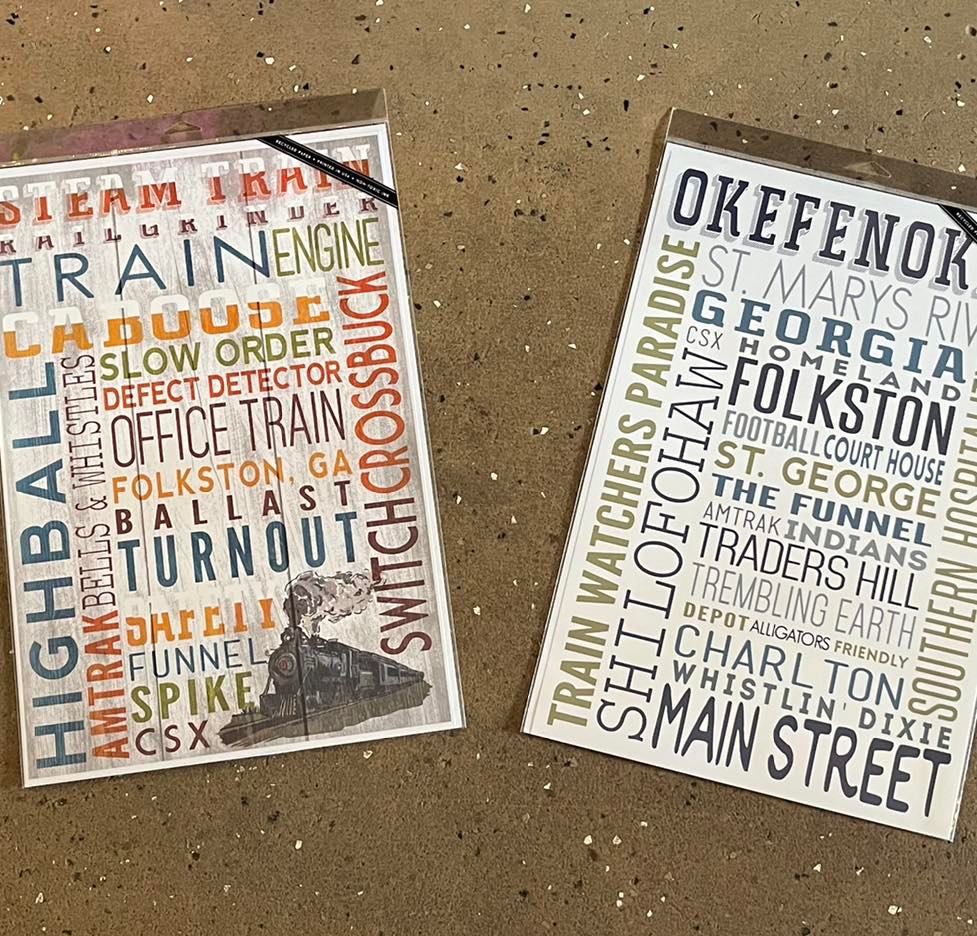 RECYCLED PAPER • PRINTED IN USA • NON-TOXIC INK
STEAM TRAIN
RAILGRINDER
TRAIN
ENGINE
CABOOSE
SLOW ORDER
DEFECT DETECTOR
OFFICE TRAIN
FOLKSTON, GA
BALLAST
TURNOUT
SAFETY
FUNNEL
SPIKE
CSX
HIGHBALL
AMTRAK
BELLS & WHISTLES
SWITCH
CROSSBUCK
OKEFENOK
ST. MARYS RIV
GEORGIA
CSX
HOMELAND
FOLKSTON
FOOTBALL
COURT HOUSE
ST. GEORGE
THE FUNNEL
AMTRAK
INDIANS
TRADERS HILL
TREMBLING EARTH
DEPOT
ALLIGATORS
FRIENDLY
CHARLTON
WHISTLIN' DIXIE
MAIN STREET
TRAIN WATCHERS PARADISE
SHILOFOHAW
SOUTHERN HOSPIT